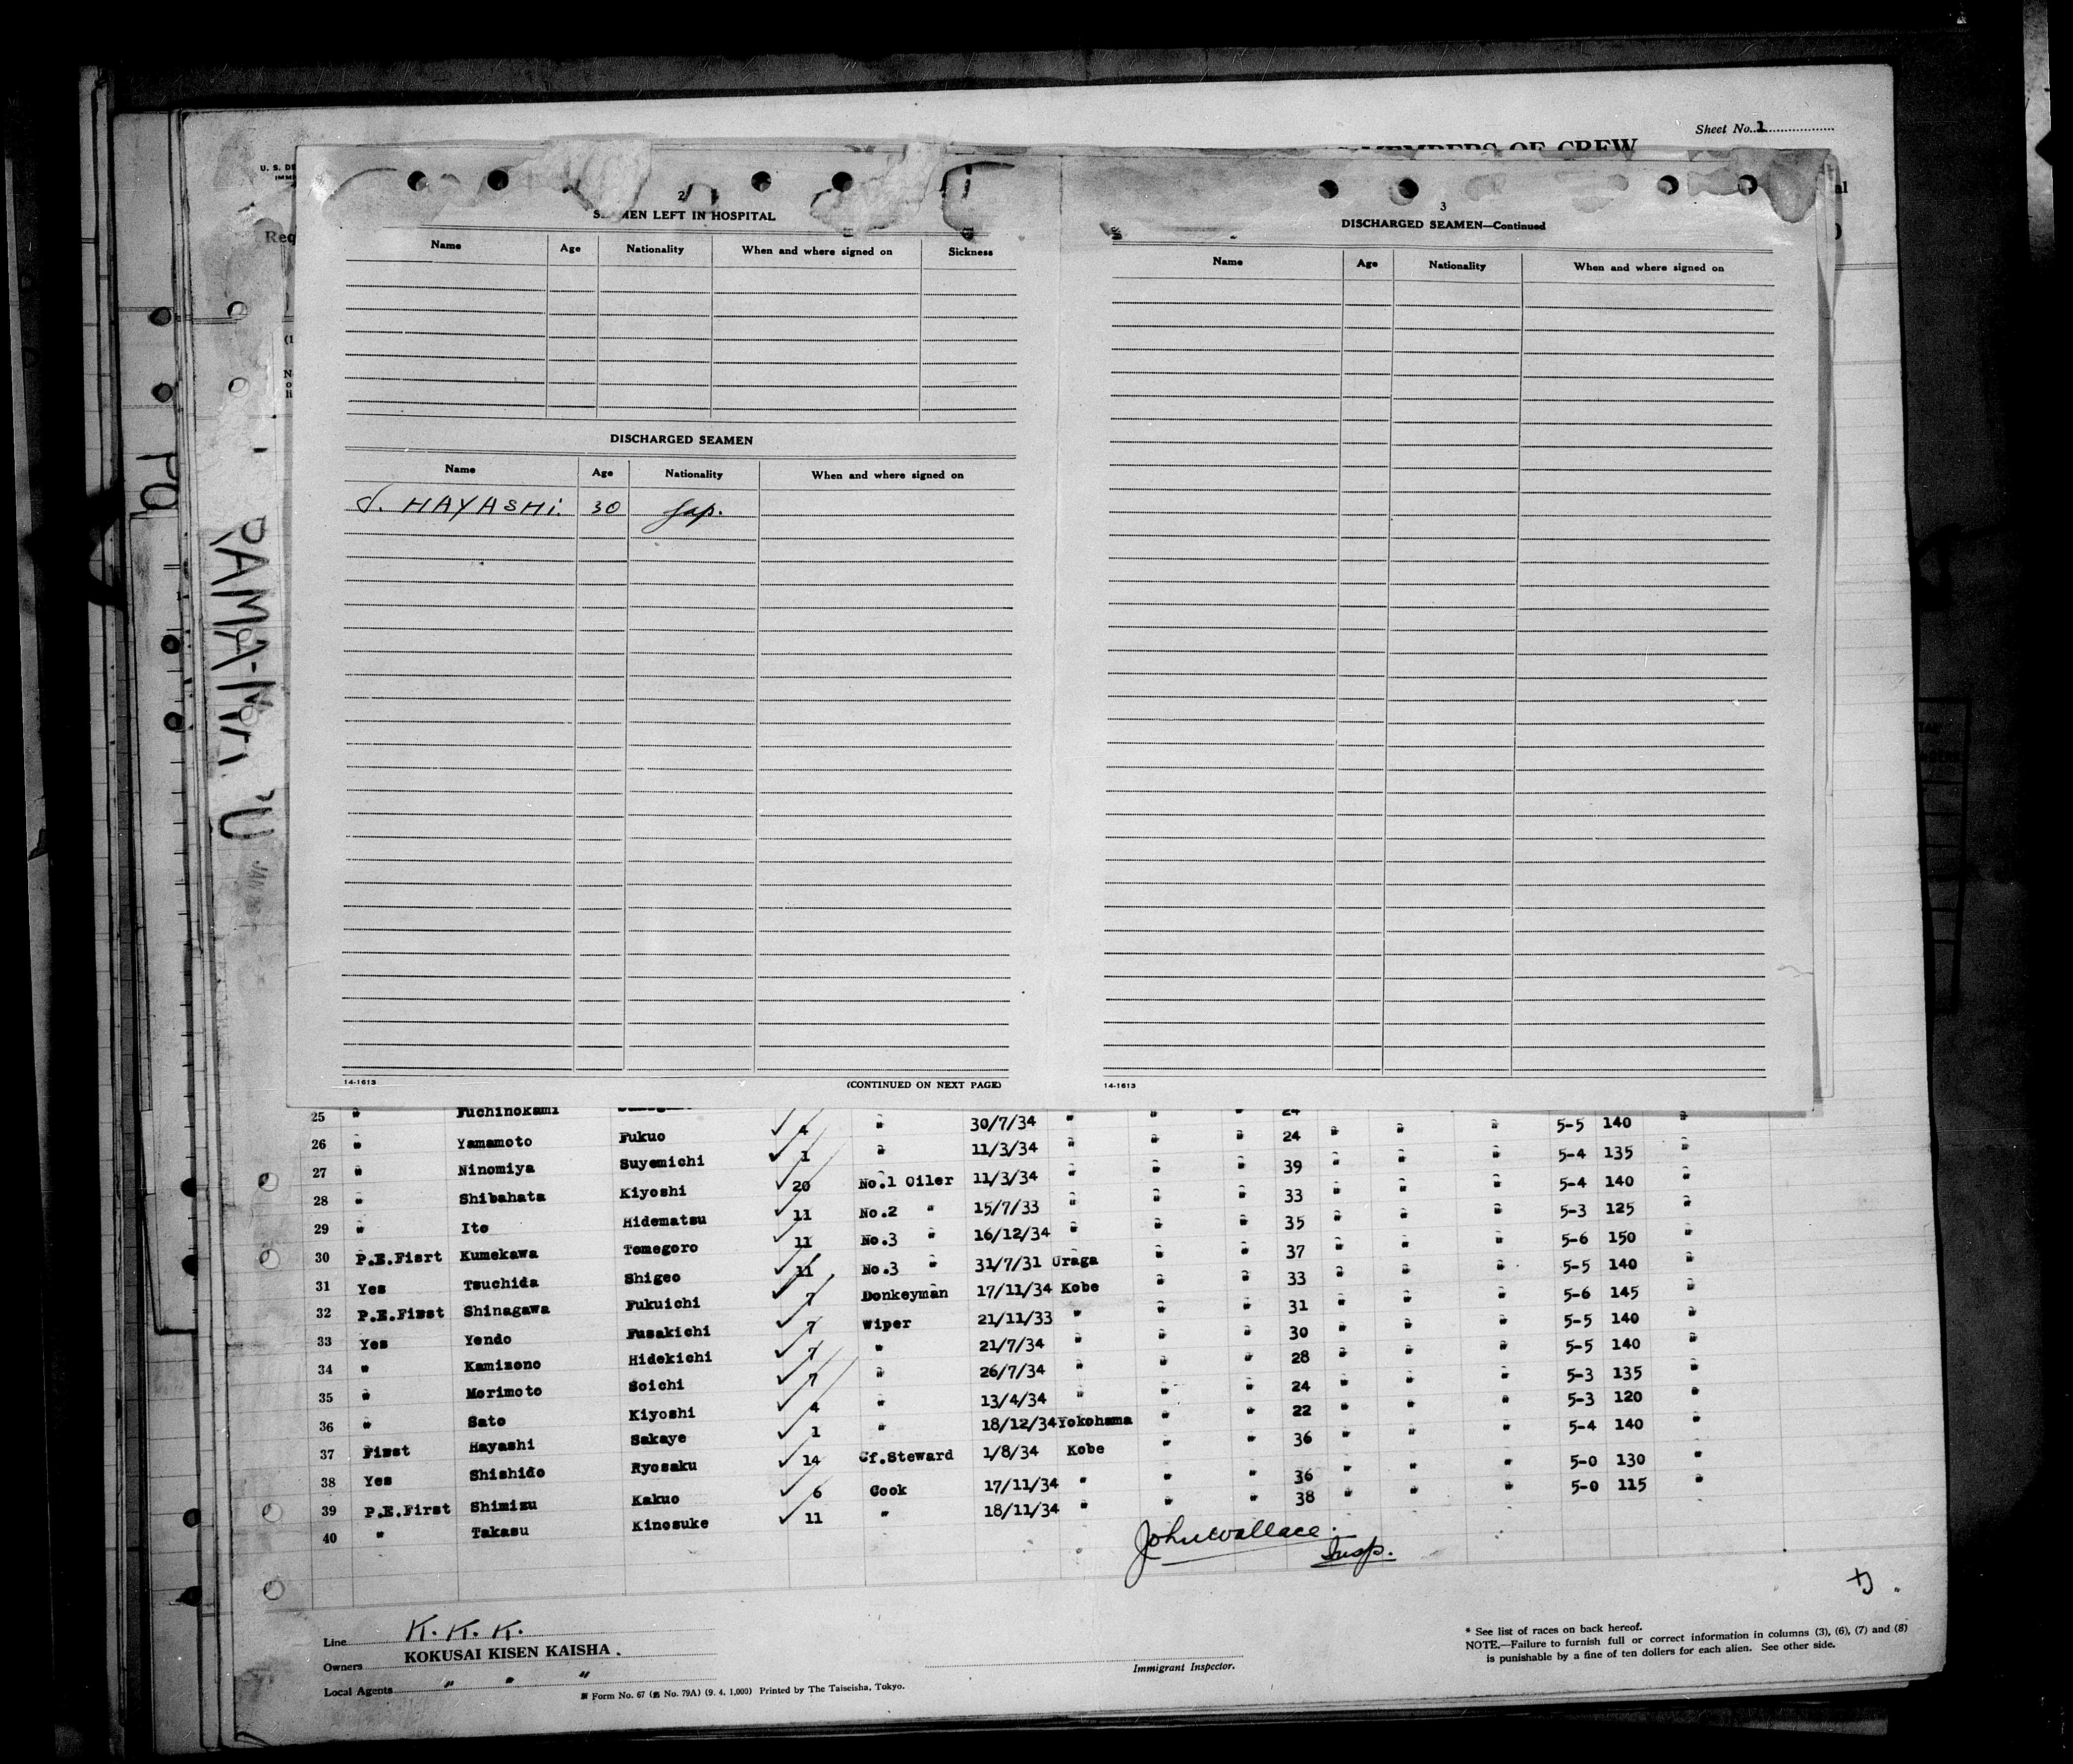 Sheet No. 1
MEMBERS OF CREW
U. S. DE
IMMI
Req
2
SEAMEN LEFT IN HOSPITAL
Name Age Nationality When and where signed on Sickness
DISCHARGED SEAMEN
Name Age Nationality When and where signed on
J. HAYASHI. 30 Jap.
14-1613 (CONTINUED ON NEXT PAGE)
3
DISCHARGED SEAMEN—Continued
Name Age Nationality When and where signed on
14-1613
25 " Fuchinokami
26 " Yamamoto Fukuo 4 " 30/7/34 " " " 24 "
27 " Ninomiya Suyemichi 1 " 11/3/34 " " " 24 " " " 5-5 140 "
28 " Shibahata Kiyoshi 20 No.1 Oiler 11/3/34 " " " 39 " " " 5-4 135 "
29 " Ito Hidematsu 11 No.2 " 15/7/33 " " " 33 " " " 5-4 140 "
30 P.E.Fisrt Kumekawa Tomegoro 11 No.3 " 16/12/34 " " " 35 " " " 5-3 125 "
31 Yes Tsuchida Shigeo 11 No.3 " 31/7/31 Uraga " " 37 " " " 5-6 150 "
32 P.E.First Shinagawa Fukuichi 7 Donkeyman 17/11/34 Kobe " " 33 " " " 5-5 140 "
33 Yes Yendo Fusakichi 7 Wiper 21/11/33 " " " 31 " " " 5-6 145 "
34 " Kamizono Hidekichi 7 " 21/7/34 " " " 30 " " " 5-5 140 "
35 " Morimoto Soichi 7 " 26/7/34 " " " 28 " " " 5-5 140 "
36 " Sato Kiyoshi 4 " 13/4/34 " " " 24 " " " 5-3 135 "
37 First Hayashi Sakaye 1 " 18/12/34 Yokohama " " 22 " " " 5-3 120 "
38 Yes Shishido Ryosaku 14 Cf.Steward 1/8/34 Kobe " " 36 " " " 5-4 140 "
39 P.E.First Shimizu Kakuo 6 Cook 17/11/34 " " " 36 " " " 5-0 130 "
40 " Takasu Kinosuke 11 " 18/11/34 " " " 38 " " " 5-0 115 "
John Wallace.
Insp.
Line K. K. K.
Owners KOKUSAI KISEN KAISHA.
Local Agents " " "
Form No. 67 (No. 79A) (9. 4. 1,000) Printed by The Taiseisha, Tokyo.
Immigrant Inspector.
* See list of races on back hereof.
NOTE.—Failure to furnish full or correct information in columns (3), (6), (7) and (8)
is punishable by a fine of ten dollars for each alien. See other side.